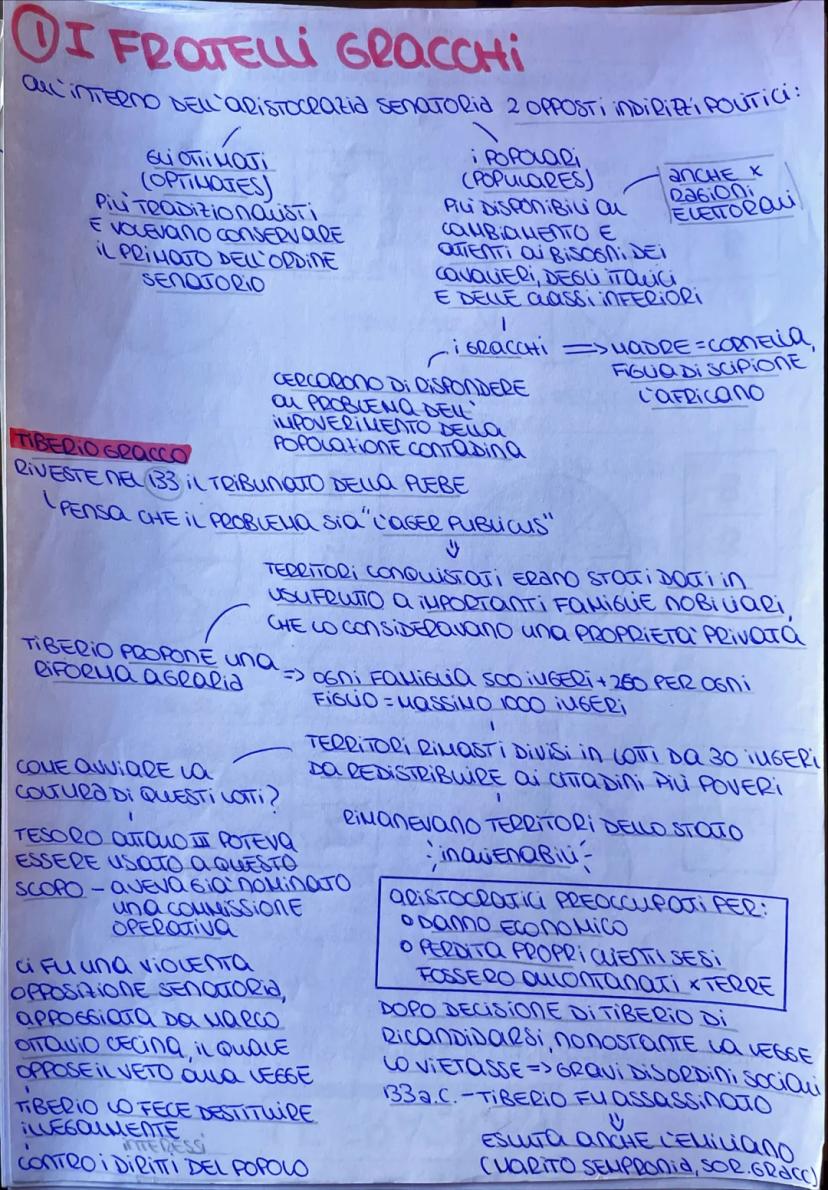 ① I FRATELLI GRACCHI
ALL'INTERNO DELL'ARISTOCRAZIA SENATORIA 2 OPPOSTI INDIRIZZI POLITICI:
GLI OTTIMATI
(OPTIMATES)
PIÙ TRADIZIONALISTI
E VOLEVANO CONSERVARE
IL PRIMATO DELL'ORDINE
SENATORIO
I POPOLARI
(POPULARES)
PIÙ DISPONIBILI AL
CAMBIAMENTO E
ATTENTI AI BISOGNI DEI
CAVALIERI, DEGLI ITALICI
E DELLE CLASSI INFERIORI
ANCHE X
RAGIONI
ELETTORALI
I GRACCHI => MADRE = CORNELIA,
FIGLIA DI SCIPIONE
L'AFRICANO
CERCARONO DI RISPONDERE
AL PROBLEMA DELL'
IMPOVERIMENTO DELLA
POPOLAZIONE CONTADINA
TIBERIO GRACCO
RIVESTE NEL 133 IL TRIBUNATO DELLA PLEBE
PENSA CHE IL PROBLEMA SIA "L'AGER PUBLICUS"
TERRITORI CONQUISTATI ERANO STATI DATI IN
USUFRUTTO A IMPORTANTI FAMIGLIE NOBILIARI,
CHE LO CONSIDERAVANO UNA PROPRIETÀ PRIVATA
TIBERIO PROPONE UNA
RIFORMA AGRARIA
=> OGNI FAMIGLIA 500 IUGERI + 250 PER OGNI
FIGLIO = MASSIMO 1000 IUGERI
TERRITORI RIMASTI DIVISI IN LOTTI DA 30 IUGERI
DA REDISTRIBUIRE AI CITTADINI PIÙ POVERI
RIMANEVANO TERRITORI DELLO STATO
INALIENABILI
COME AVVIARE LA
COLTURA DI QUESTI LOTTI?
TESORO ATTALO III POTEVA
ESSERE USATO A QUESTO
SCOPO - AVEVA GIÀ NOMINATO
UNA COMMISSIONE
OPERATIVA
ARISTOCRATICI PREOCCUPATI PER:
○ DANNO ECONOMICO
○ PERDITA PROPRI CLIENTI SE SI
FOSSERO ALLONTANATI X TERRE
CI FU UNA VIOLENTA
OPPOSIZIONE SENATORIA,
APPOGGIATA DA MARCO
OTTAVIO CECINA, IL QUALE
OPPOSE IL VETO ALLA LEGGE
TIBERIO LO FECE DESTITUIRE
ILLEGALMENTE
INTERESSI
CONTRO I DIRITTI DEL POPOLO
DOPO DECISIONE DI TIBERIO DI
RICANDIDARSI, NONOSTANTE LA LEGGE
LO VIETASSE => GRAVI DISORDINI SOCIALI
133 a.C. - TIBERIO FU ASSASSINATO
ESULTA ANCHE L'EMILIANO
(MARITO SEMPRONIA, SOR. GRACC)